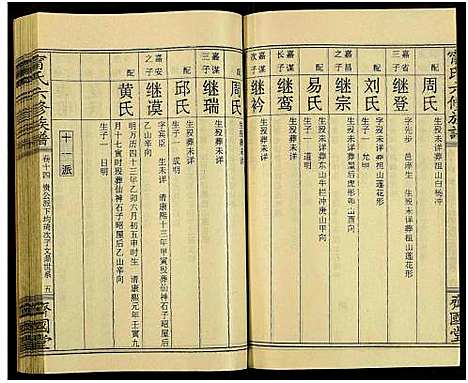 甯氏六修族譜
齊國堂
配
周氏
生殁未详葬祖山白杨冲
嘉省
三子
继登
字先步
邑庠生
生殁未详葬祖山莲花形
配
刘氏
字殁未详葬祖山莲花形
生子一
允明
嘉昌
之子
继宗
生殁未详葬祖山屋后虎形
配
易氏
生殁未详葬东山牛栏冲庚山甲向
生子一
道明
嘉谋
长子
继鸾
生殁未详
嘉谋
次子
继衿
生殁未详
配
周氏
嘉谋
三子
继瑞
生殁未详
配
邱氏
生殁未详
生子一
成明
嘉安
之子
继谟
字宾臣
生未详
清康熙十三年甲寅殁葬仙神石子昭屋后
乙山辛向
配
黄氏
明万历四十三年乙卯六月初五申时生
清康熙元年壬寅九
月十七寅时殁葬仙神石子昭屋后乙山辛向
生子一
日明
十一派
甯氏六修族譜
卷十四
贵公派下均琦次子文晁世系
五
齊國堂